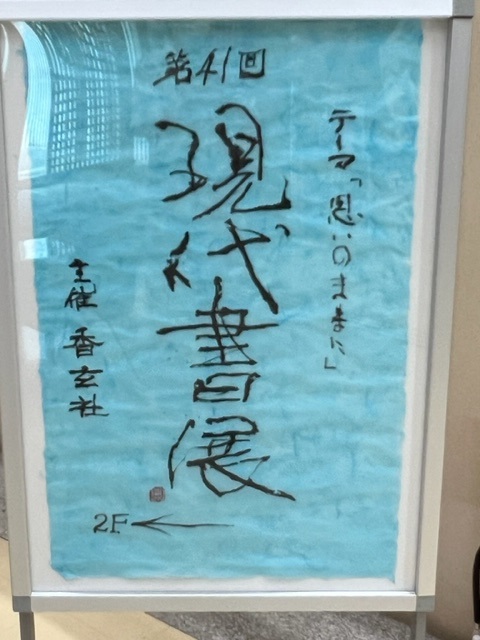 第41回
現代書展
テーマ「思いのままに」
主催 香玄社
2F ←